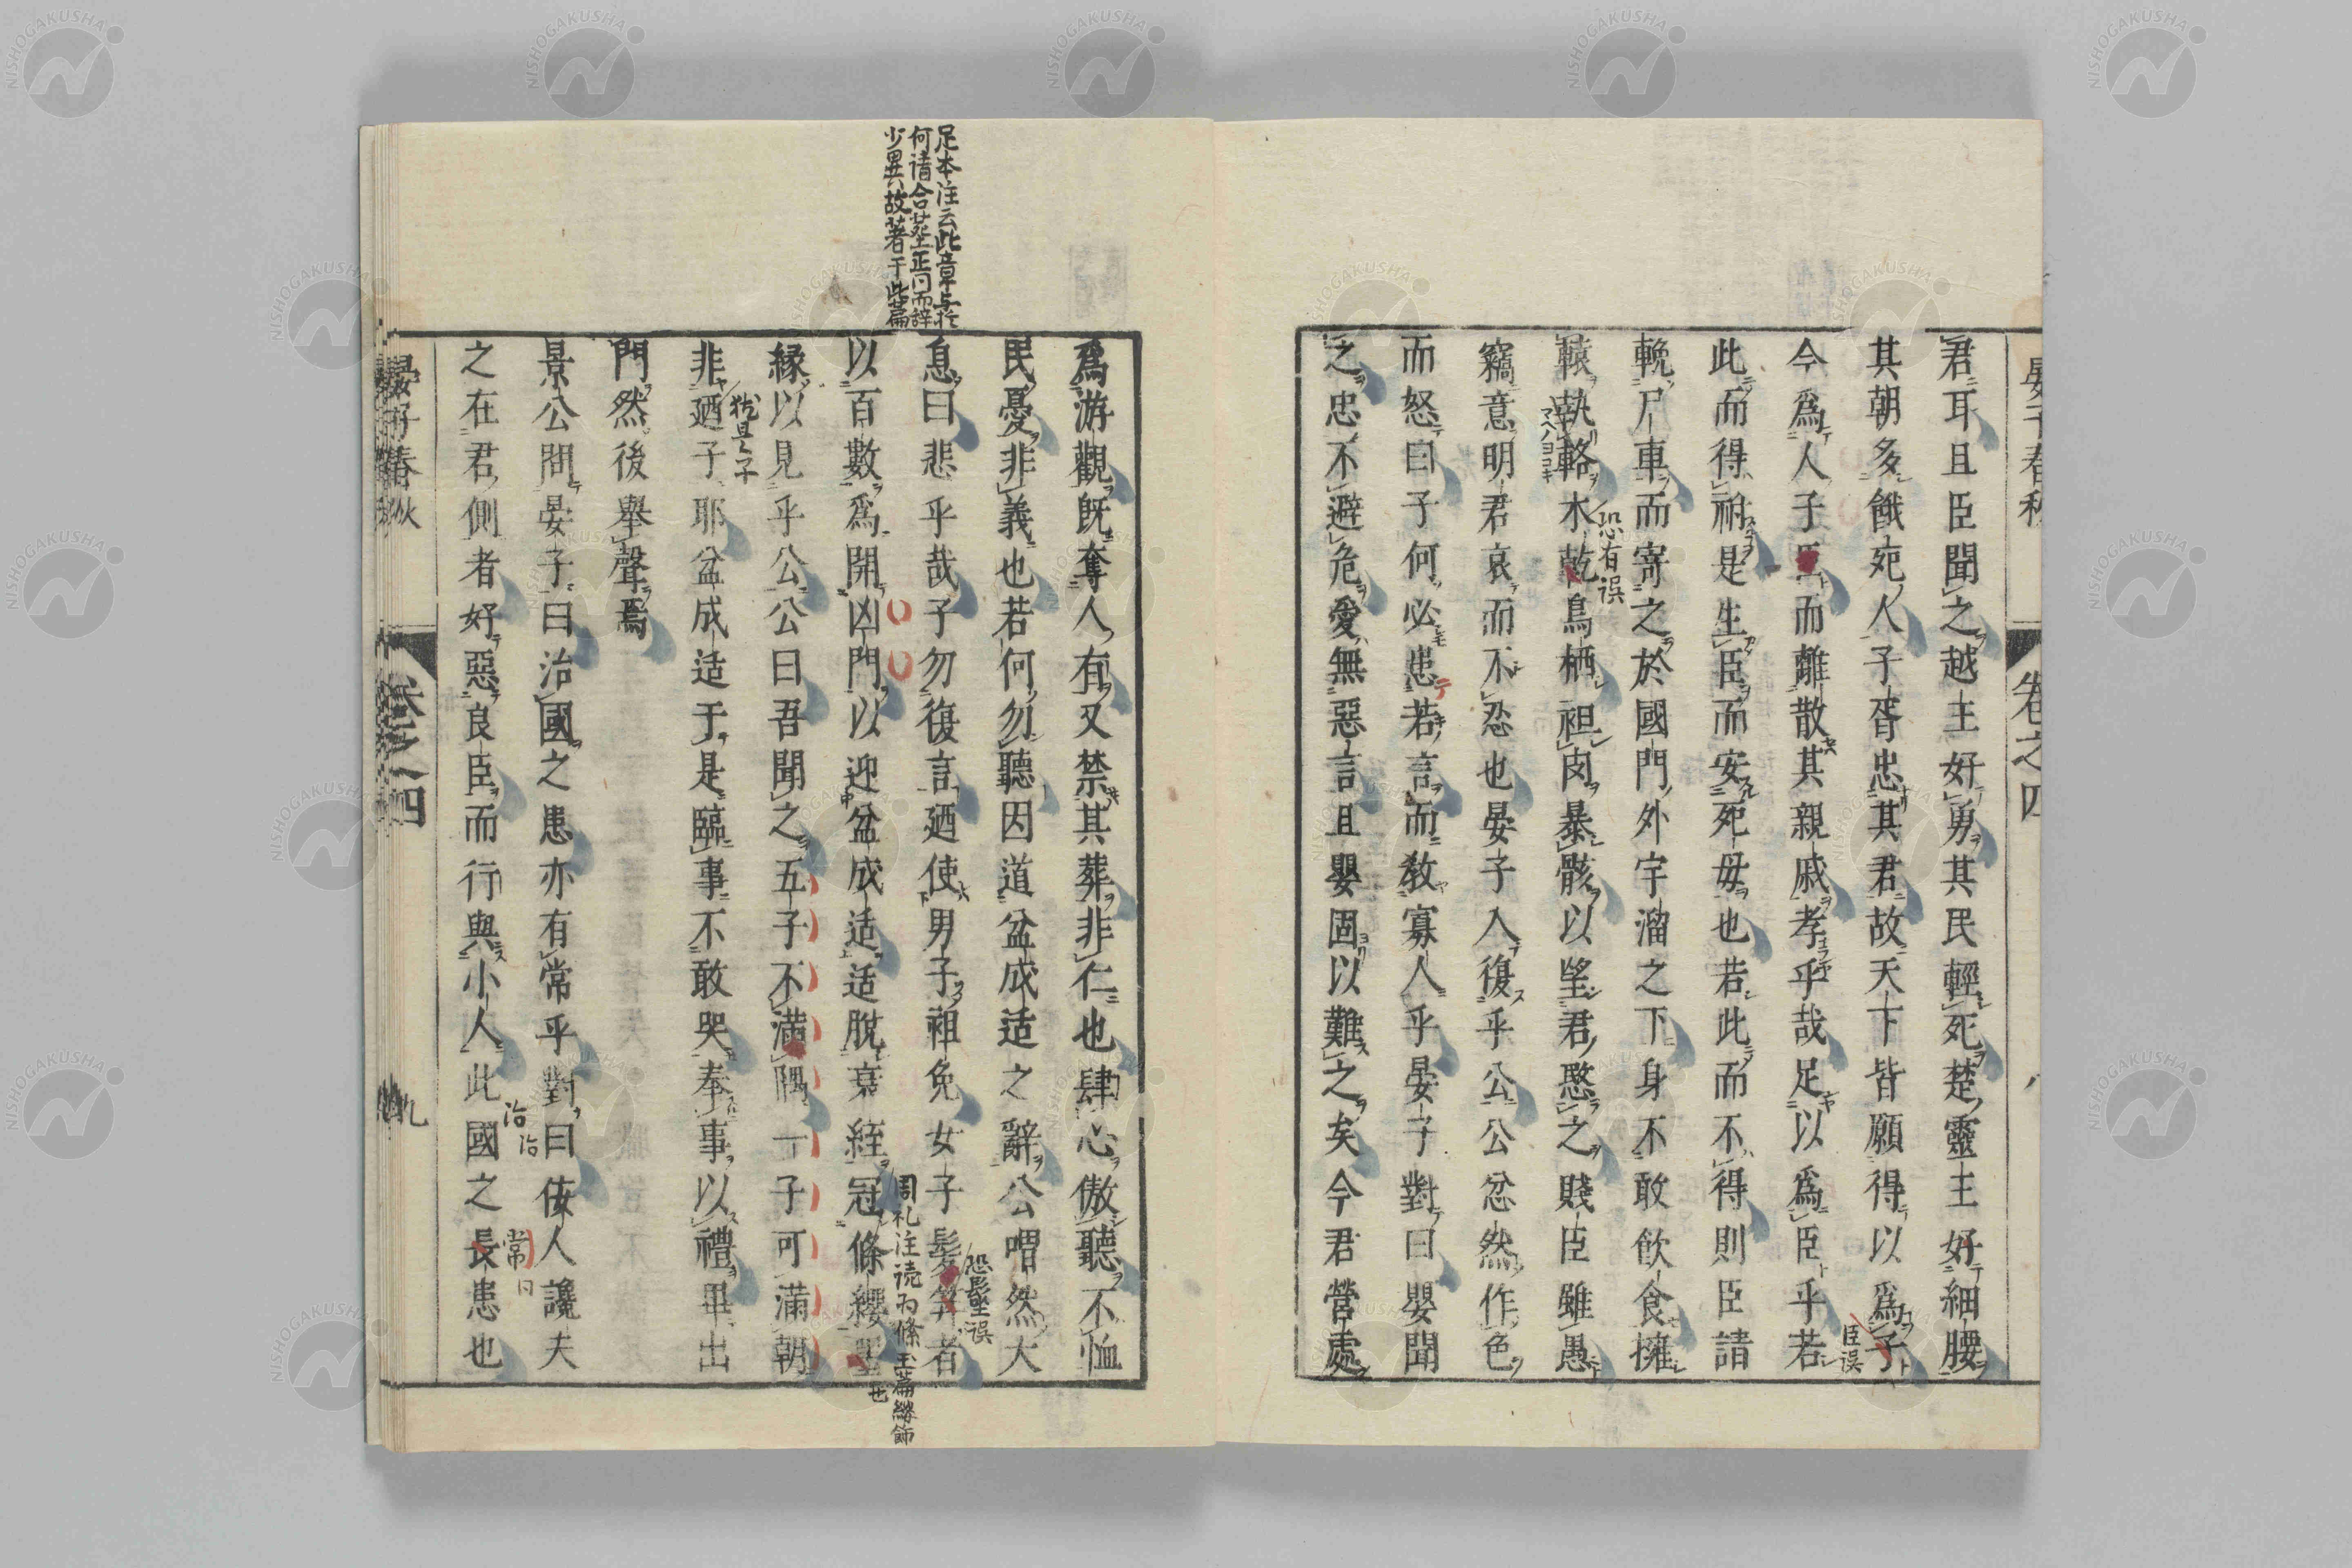 晏子春秋
卷之四
八
君耳且臣聞之越王好勇其民輕死楚靈王好細腰
其朝多餓死人子胥忠其君故天下皆願得以爲子
臣誤
今爲人子臣而離散其親戚孝乎哉足以爲臣乎若
此而得祔是生臣而安死母也若此而不得則臣請
輓尸車而寄之於國門外宇溜之下身不敢飲食擁
轅執輅木乾鳥栖袒肉暴骸以望君愍之賤臣雖愚
恐有誤
竊意明君哀而不忍也晏子入復乎公公忿然作色
而怒曰子何必患若言而教寡人乎晏子對曰嬰聞
之忠不避危愛無惡言且嬰固以難之矣今君營處
爲游觀既奪人有又禁其葬非仁也肆心傲聽不恤
民憂非義也若何勿聽因道盆成适之辭公喟然大
足本注云此章与
何請合葬正同而辞
少異故著于此篇
息曰悲乎哉子勿復言廼使男子袒免女子髽笄者
恐髽誤
以百數爲開凶門以迎盆成适适脫衰絰冠條纓墨
周礼注読为條玉篇纓飾
也
緣以見乎公公曰吾聞之五子不滿隅一子可滿朝
非廼子耶盆成适于是臨事不敢哭奉事以禮畢出
門然後舉聲焉
景公問晏子曰治國之患亦有常乎對曰佞人讒夫
治
治
常
之在君側者好惡良臣而行與小人此國之長患也
晏子春秋
卷之四
九